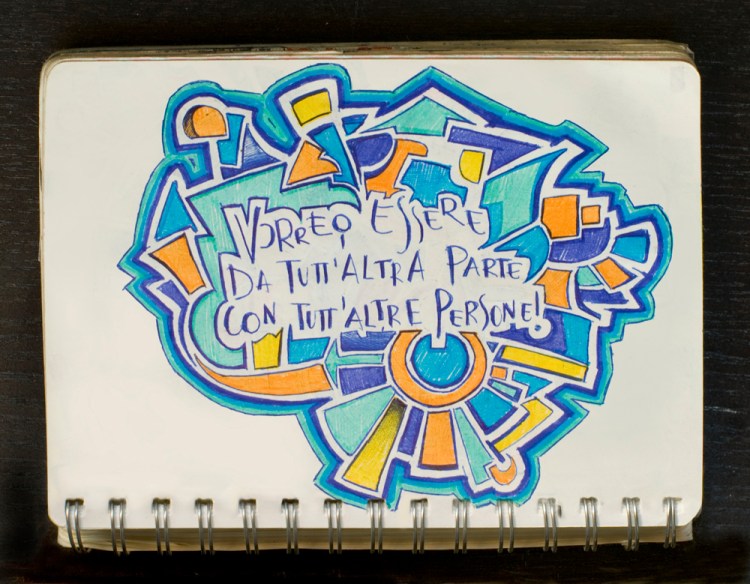 VORREI ESSERE
DA TUTT'ALTRA PARTE
CON TUTT'ALTRE PERSONE!